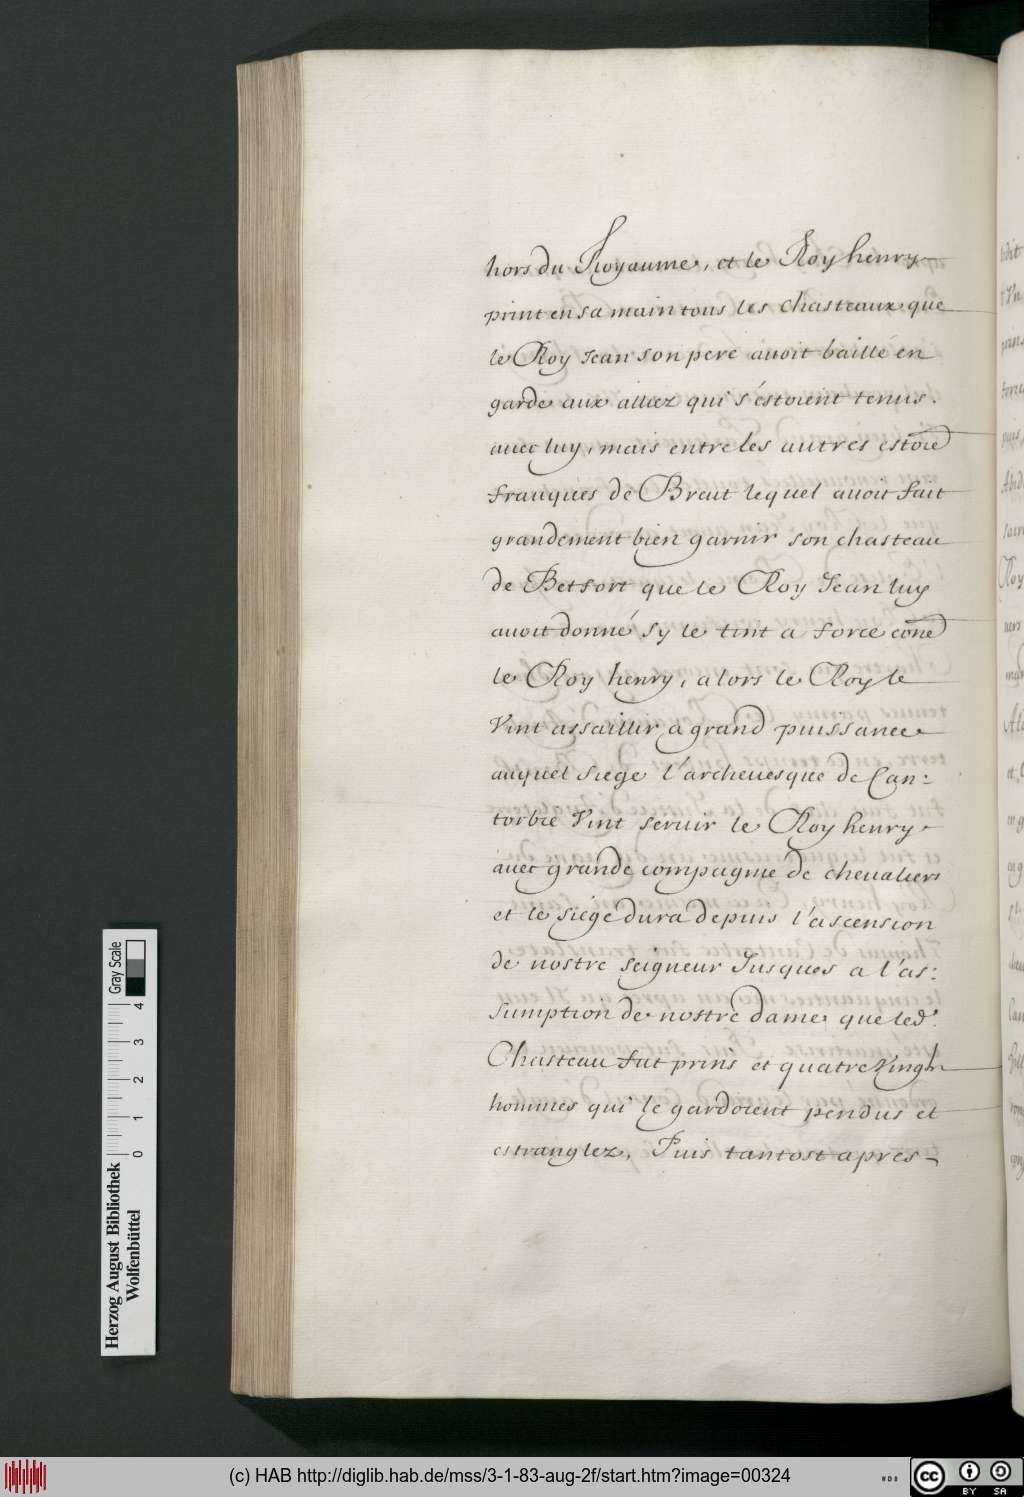 hors du Royaume, et le Roy henry
print en sa main tous les chasteaux que
le Roy Jean son pere auoit baillé en
garde aux alliez qui s'estoient tenus.
auec luy, mais entre les autres estoie
frauques de Breut lequel auoit fait
grandement bien garnir son chasteau
de Betfort que le Roy Jean luy
auoit donné sy le tint a force cone
le Roy henry, alors le Roy le
vint assaillir a grand puissance
auquel siege l'archeuesque de Can:
torbie vint seruir le Roy henry
auec grande compagnie de cheualiers
et le siege dura depuis l'ascension
de nostre seigneur Jusques a l'as:
sumption de nostre dame que led.
Chasteau fut prins et quatre vingh
hommes qui le gardoient pendus et
estranglez, Puis tantost apres
Herzog August Bibliothek
Wolfenbüttel
Gray Scale
0 1 2 3 4
(c) HAB http://diglib.hab.de/mss/3-1-83-aug-2f/start.htm?image=00324
cc BY SA